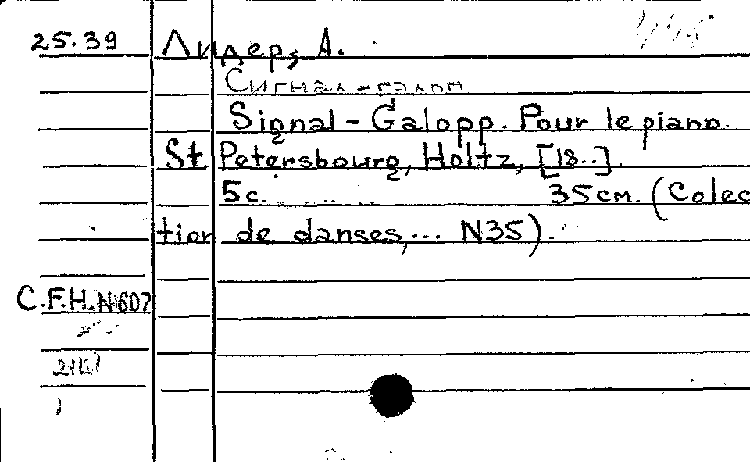 25.39 Лидер, А.
Сигнал-галоп
Signal-Galopp. Pour le piano.
St Petersbourg, Holtz, [18..].
5с. 35см. (Colec
tion de danses,... N35).
C.F.H.N607